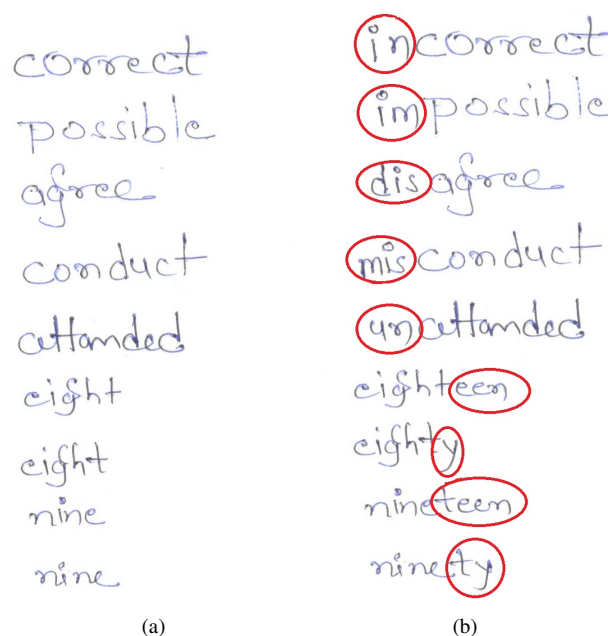 correct
possible
agree
conduct
attanded
eight
eight
nine
nine
(a)
incorrect
impossible
disagree
misconduct
unattanded
eighteen
eighty
nineteen
ninety
(b)